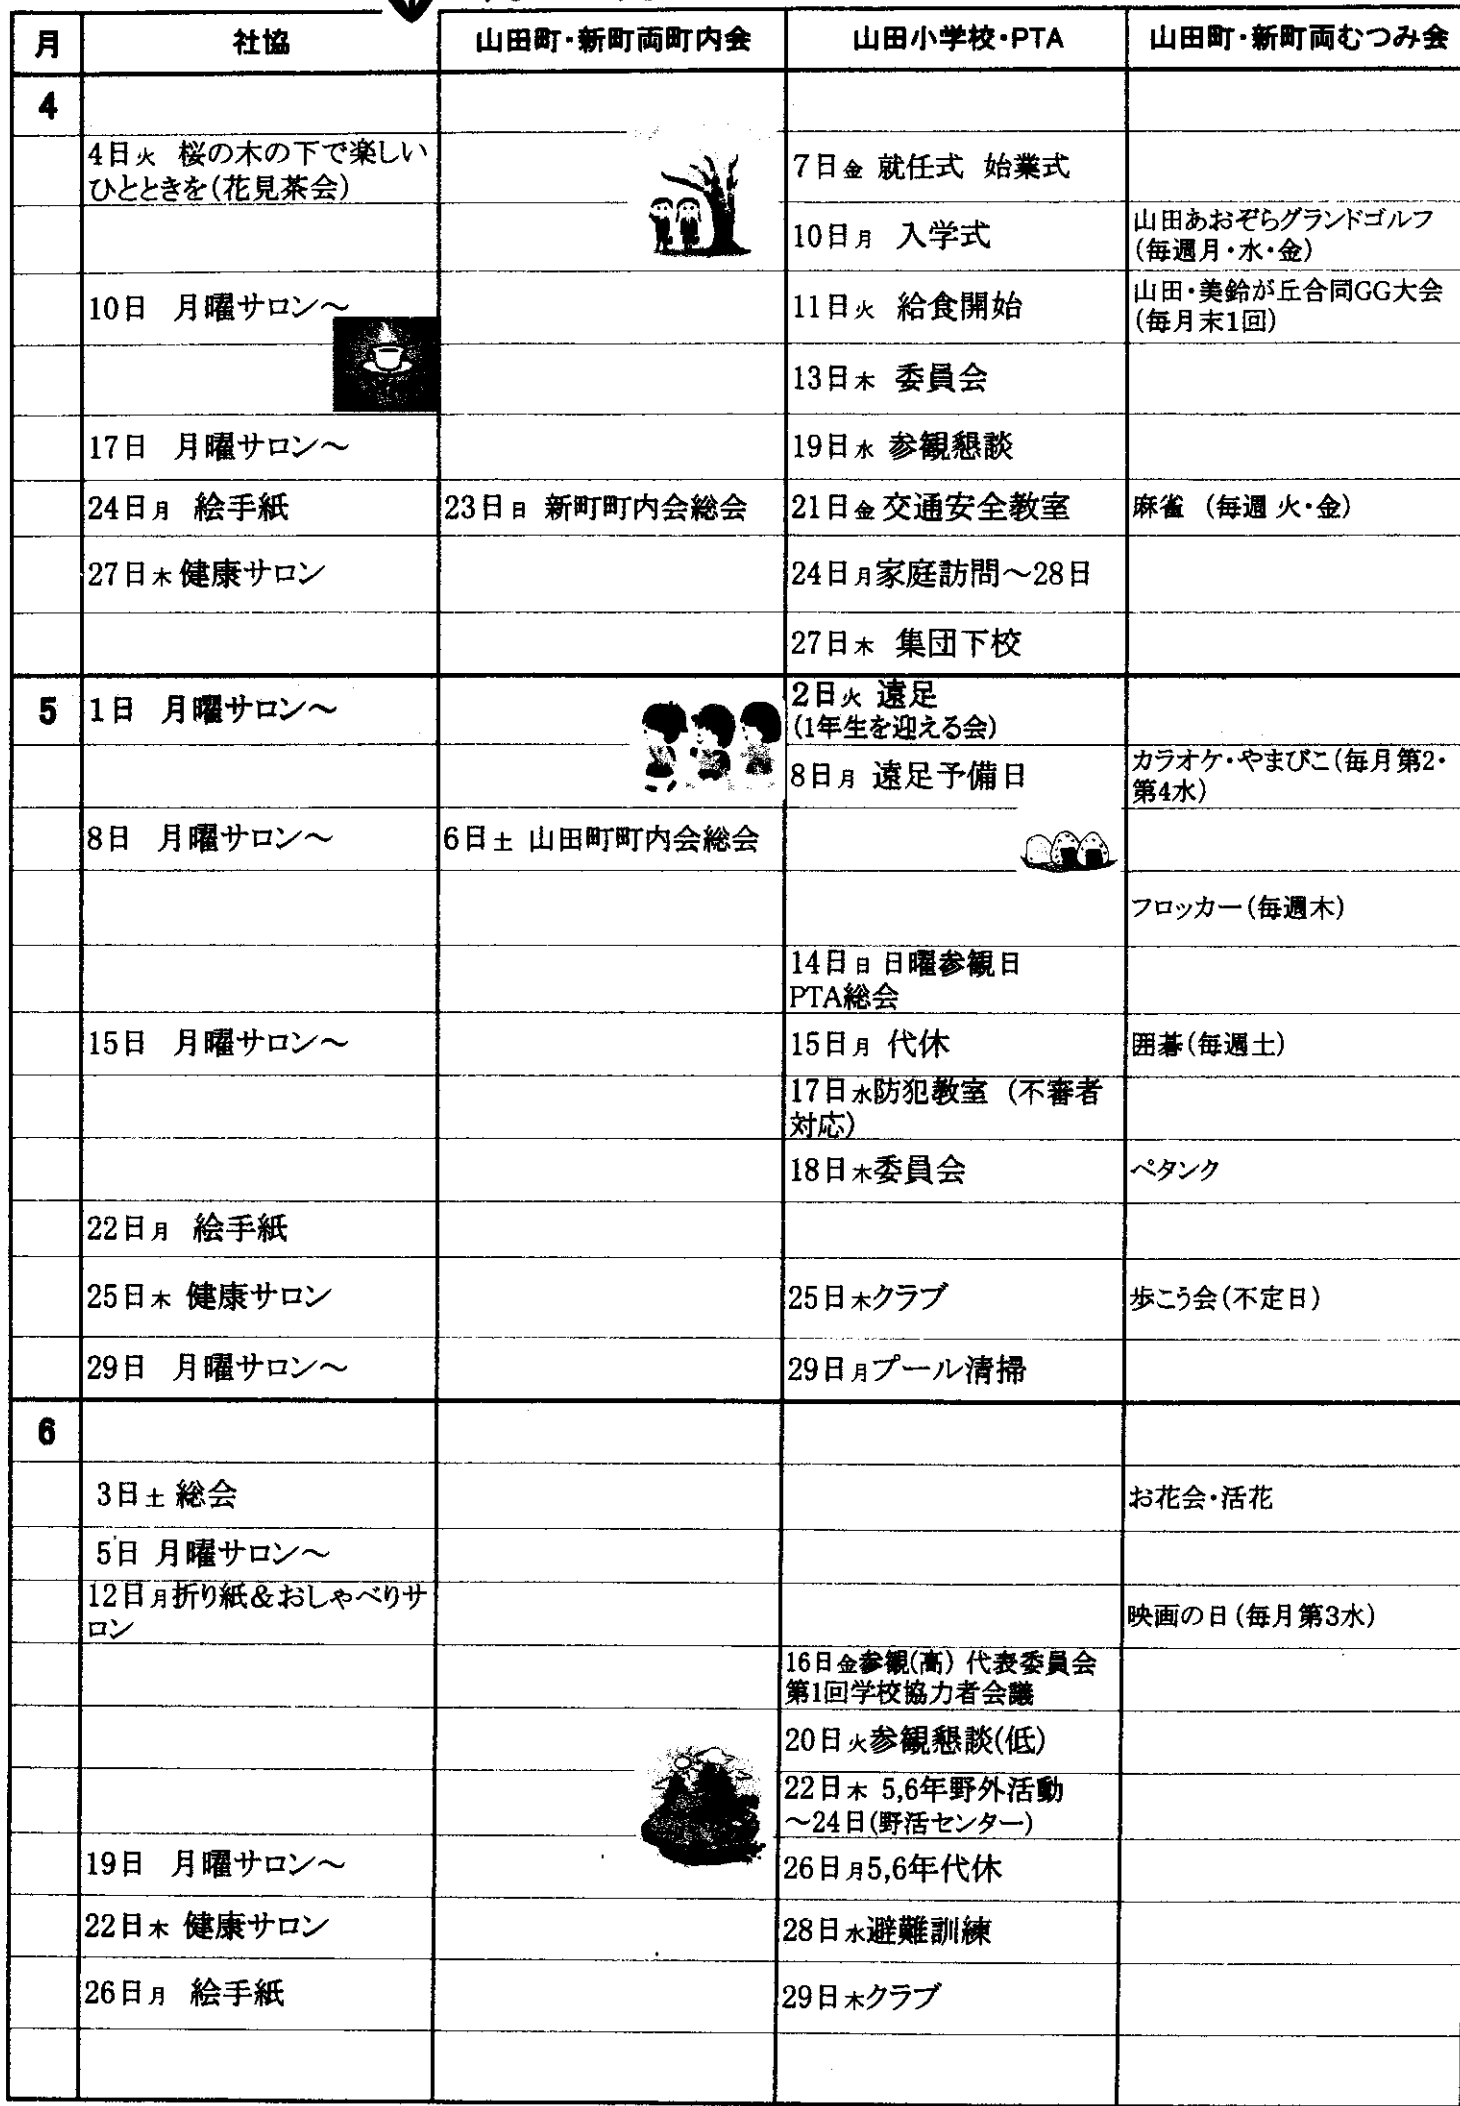 月 社協 山田町・新町両町内会 山田小学校・PTA 山田町・新町両むつみ会
4
4日火 桜の木の下で楽しい
ひとときを(花見茶会)
7日金 就任式 始業式
10日月 入学式
山田あおぞらグランドゴルフ
(毎週月・水・金)
10日 月曜サロン～
11日火 給食開始
山田・美鈴が丘合同GG大会
(毎月末1回)
13日木 委員会
17日 月曜サロン～
19日水 参観懇談
24日月 絵手紙
23日日 新町町内会総会
21日金 交通安全教室
麻雀 (毎週 火・金)
27日木 健康サロン
24日月家庭訪問～28日
27日木 集団下校
5
1日 月曜サロン～
2日火 遠足
(1年生を迎える会)
8日月 遠足予備日
カラオケ・やまびこ(毎月第2・
第4水)
8日 月曜サロン～
6日土 山田町町内会総会
フロッカー(毎週木)
14日日 日曜参観日
PTA総会
15日 月曜サロン～
15日月 代休
囲碁(毎週土)
17日水防犯教室 (不審者
対応)
18日木委員会
ペタンク
22日月 絵手紙
25日木 健康サロン
25日木クラブ
歩こう会(不定日)
29日 月曜サロン～
29日月プール清掃
6
3日土 総会
お花会・活花
5日 月曜サロン～
12日月折り紙&おしゃべりサ
ロン
映画の日(毎月第3水)
16日金参観(高) 代表委員会
第1回学校協力者会議
20日火参観懇談(低)
22日木 5,6年野外活動
～24日(野活センター)
19日 月曜サロン～
26日月5,6年代休
22日木 健康サロン
28日水避難訓練
26日月 絵手紙
29日木クラブ